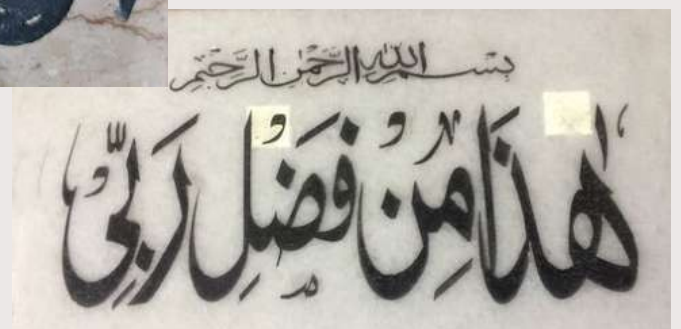 بِسْمِ اللّٰهِ الرَّحْمٰنِ الرَّحِيْمِ
هٰذَا مِنْ فَضْلِ رَبِّیْ